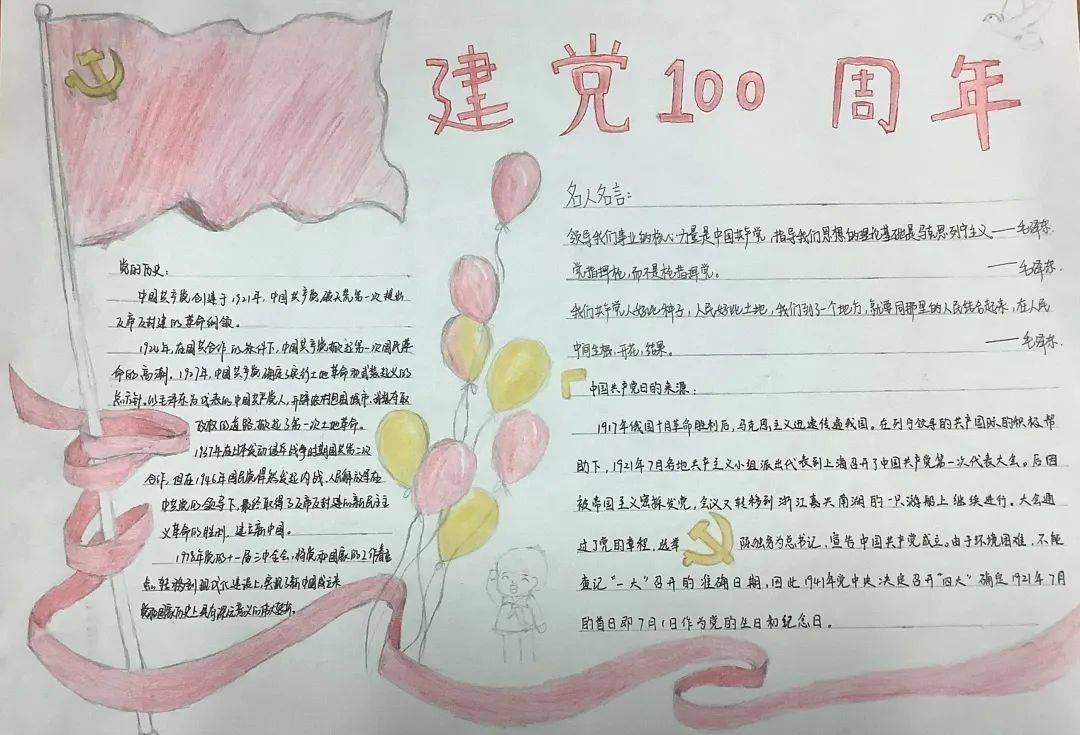 建党100周年
党的历史：
中国共产党创建于1921年，中国共产党破天荒第一次提出
反帝反封建的革命纲领。
1924年，在国共合作的条件下，中国共产党掀起第一次国民革
命的高潮。1927年，中国共产党确定实行土地革命和武装起义的
总方针。以毛泽东为代表的中国共产党人，开辟农村包围城市、武装夺取
政权的道路，掀起了第一次土地革命。
1937年在日本发动侵华战争时期国共第二次
合作，但在1946年国民党悍然发起内战，人民解放军在
中共党的领导下，最终取得了反帝反封建的新民主主
义革命的胜利，建立新中国。
1978年党的十一届三中全会，将党和国家的工作着重
点转移到现代化建设上，实现了新中国成立来
党和国家历史上具有深远意义的伟大转折。
名人名言：
领导我们事业的核心力量是中国共产党，指导我们思想的理论基础是马克思列宁主义——毛泽东
党指挥枪，而不是枪指挥党。——毛泽东
我们共产党人好比种子，人民好比土地，我们到了一个地方，就要同那里的人民结合起来，在人民
中间生根，开花，结果。——毛泽东
中国共产党日的来源：
1917年俄国十月革命胜利后，马克思主义迅速传遍我国。在列宁领导的共产国际的积极帮
助下，1921年7月各地共产主义小组派出代表到上海召开了中国共产党第一次代表大会。后因
被帝国主义密探发觉，会议又转移到浙江嘉兴南湖的一只游船上继续进行。大会通
过了党的章程，选举陈独秀为总书记，宣告中国共产党成立。由于环境困难，不能
查记“一大”召开的准确日期，因此1941年党中央决定召开“四大”确定1921年7月
的首日即7月1日作为党的生日和纪念日。